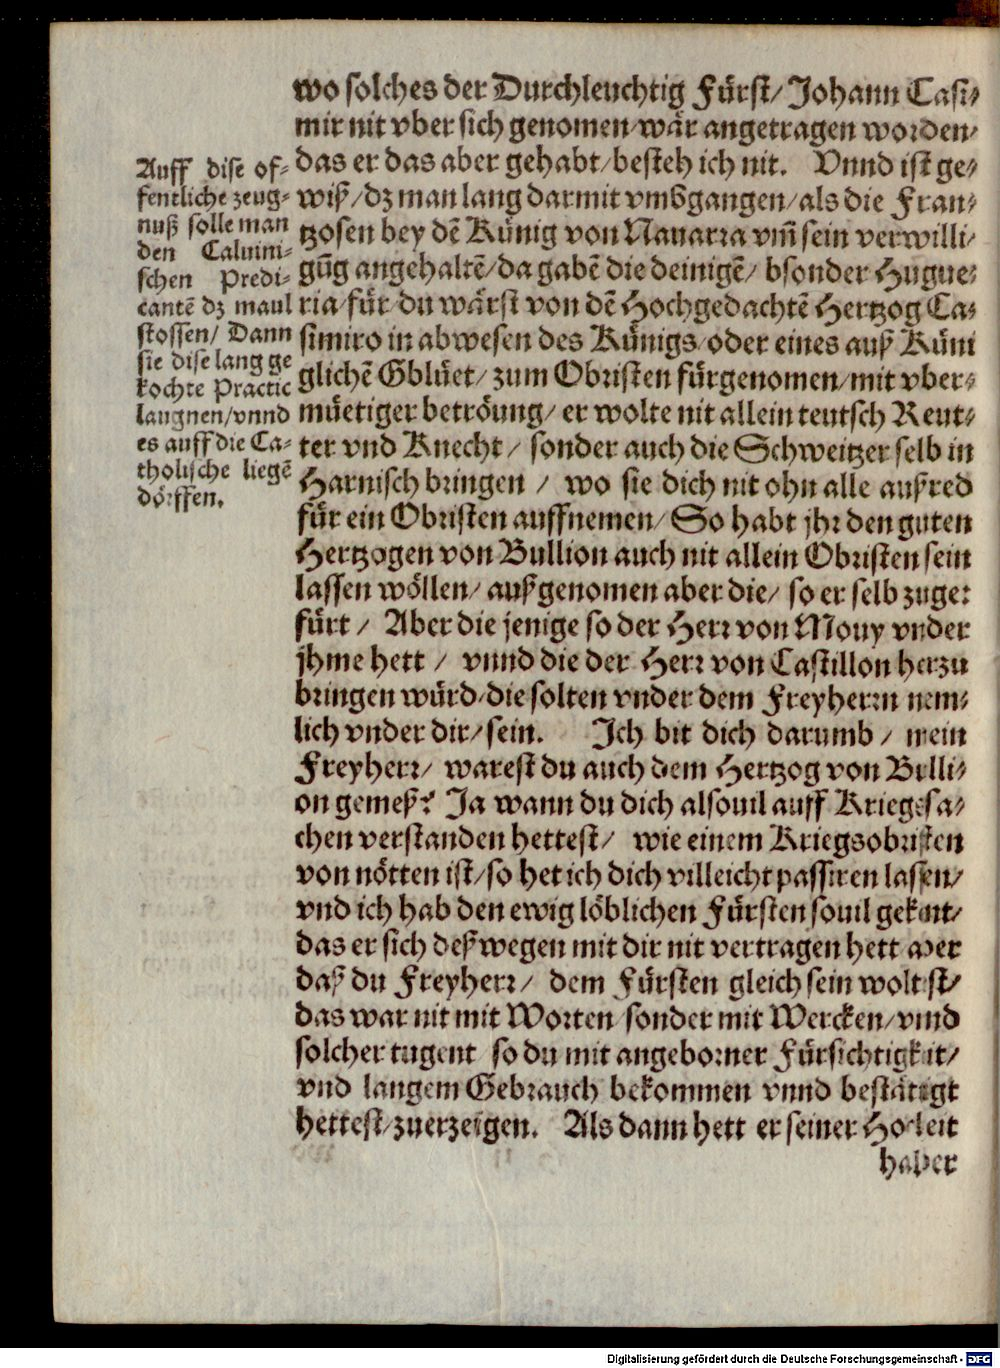 wo solches der Durchleuchtig Fürst/ Johann Casi⸗
mir nit vber sich genomen/wår angetragen worden/
das er das aber gehabt/besteh ich nit. Vnnd ist ge⸗
wiß/dz man lang darmit vmbgangen/als die Fran⸗
tzosen bey dē Künig von Nauarra vm̄ sein verwilli⸗
gūg angehaltē/da gabē die deinigē/ bsonder Hugue⸗
ria/für/du wårst von dē Hochgedachtē Hertzog Ca⸗
simiro in abwesen des Künigs/oder eines auß Küni
glichē Gblüet/ zum Obristen fürgenomen/mit vber⸗
müetiger betröung/ er wolte nit allein teutsch Reut⸗
ter vnd Knecht/ sonder auch die Schweitzer selb in
Harnisch bringen / wo sie dich nit ohn alle außred
für ein Obristen auffnemen/ So habt jhr den guten
Hertzogen von Bullion auch nit allein Obristen sein
lassen wöllen/ außgenomen aber die/ so er selb zuge⸗
fürt/ Aber die jenige so der Herr von Mouy vnder
jhme hett / vnnd die der Herr von Castillon herzu
bringen würd/die solten vnder dem Freyherrn nem⸗
lich vnder dir/sein. Ich bit dich darumb/ mein
Freyherr/ warest du auch dem Hertzog von Bulli⸗
on gemeß? Ja wann du dich alsouil auff Kriegssa⸗
chen verstanden hettest/ wie einem Kriegsobristen
von nötten ist/so het ich dich villeicht passiren lassen/
vnd ich hab den ewig löblichen Fürsten souil gekent/
das er sich deßwegen mit dir nit vertragen hett aber
daß du Freyherr/ dem Fürsten gleich sein woltst/
das war nit mit Worten/sonder mit Wercken/vnnd
solcher tugent so du mit angeborner Fürsichtigkeit/
vnd langem Gebrauch bekommen vnnd bestätigt
hettest/zuerzeigen. Als dann hett er seiner Hocheit
haber
Auff dise of⸗
fentliche zeug⸗
nuß solle man
den Caluini⸗
schen Predi⸗
cantē dz maul
stossen/ Dann
sie dise lang ge
kochte Practic
laugnen/vnnd
es auff die Ca⸗
tholische liegē
dörffen.
Digitalisierung gefördert durch die Deutsche Forschungsgemeinschaft - DFG